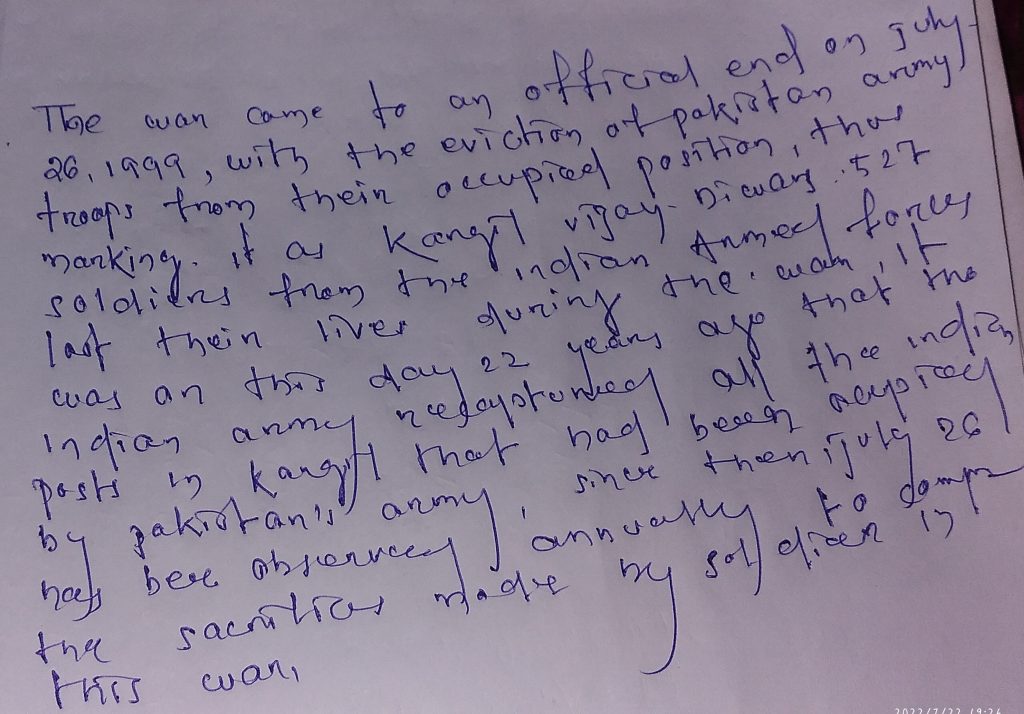 The war came to an official end on july
26, 1999, with the eviction of pakistan army
troops from their occupied position, thus
marking. it as Kargil vijay. Diwas. 527
soldiers from the indian Armed forces
last their lives during the war, it
was on this day 22 years ago that the
indian army recaptured all thee indian
posts in Kargil that had been occupied
by pakistan's army, since then july 26
has bee observed annually to
the sacrifices made by soldier in
this war,
2022/7/22 19:26